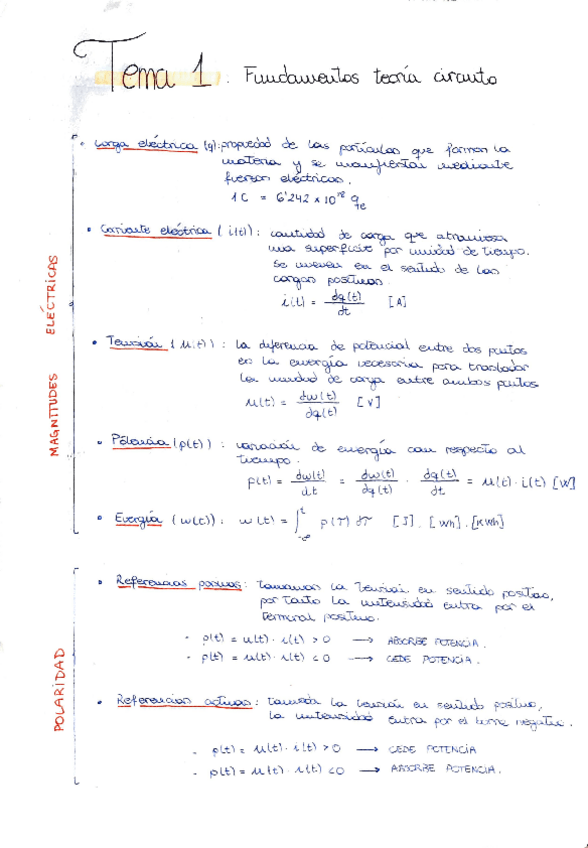 Tema 1. Fundamentos teoría circuito
MAGNITUDES ELÉCTRICAS
• Carga eléctrica (q): propiedad de las partículas que forman la
materia y se manifiestan mediante
fuerzas eléctricas.
1 C = 6'242 x 10^18 qe
• Corriente eléctrica (i(t)): cantidad de carga que atraviesa
una superficie por unidad de tiempo.
Se mueven en el sentido de las
cargas positivas
i(t) = dq(t)/dt [A]
• Tensión (u(t)): la diferencia de potencial entre dos puntos
es la energía necesaria para trasladar
la unidad de carga entre ambos puntos
u(t) = dw(t)/dq(t) [V]
• Potencia (p(t)): variación de energía con respecto al
tiempo.
p(t) = dw(t)/dt = dw(t)/dq(t) · dq(t)/dt = u(t) · i(t) [W]
• Energía (w(t)): w(t) = ∫_{-∞}^{t} p(τ) dτ [J], [Wh], [KWh]
POLARIDAD
• Referencias pasivas: tomamos la tensión en sentido positivo,
por tanto la intensidad entra por el
terminal positivo.
- p(t) = u(t) · i(t) > 0 → ABSORBE POTENCIA.
- p(t) = u(t) · i(t) < 0 → CEDE POTENCIA.
• Referencias activas: tomada la tensión en sentido positivo,
la intensidad entra por el borne negativo.
- p(t) = u(t) · i(t) > 0 → CEDE POTENCIA
- p(t) = u(t) · i(t) < 0 → ABSORBE POTENCIA.